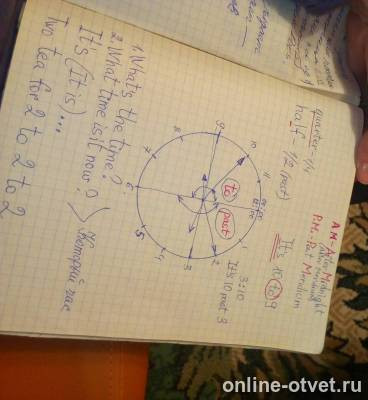 A.M - After Midnight
P.M. - Past Meridium
quarter - 1/4
half 1/2 (past)
It's 10 to 9
3:10
It's 10 past 3
to
past
1
2
3
4
5
6
7
8
9
10
11
1. What's the time?
2. What time is it now?
Который час
It's (It is)...
Two tea for 2 to 2 to 2
online-otvet.ru